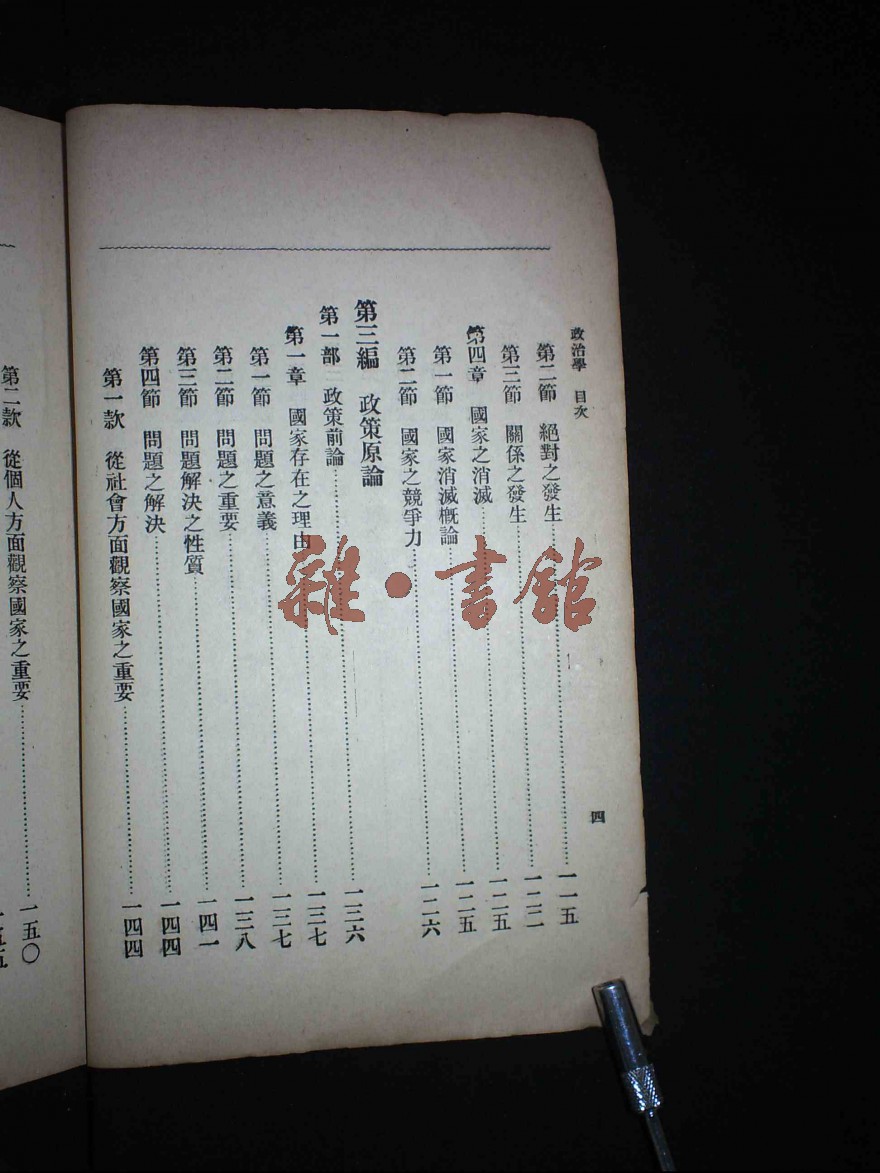 政治學 目次
四
第二節 絕對之發生 一一五
第三節 關係之發生 一二二
第四章 國家之消滅 一二五
第一節 國家消滅概論 一二五
第二節 國家之競爭力 一二六
第三編 政策原論
第一部 政策前論 一三六
第一章 國家存在之理由 一三七
第一節 問題之意義 一三七
第二節 問題之重要 一三八
第三節 問題解決之性質 一四一
第四節 問題之解決 一四四
第一款 從社會方面觀察國家之重要 一四四
第二款 從個人方面觀察國家之重要 一五〇
雜·書館